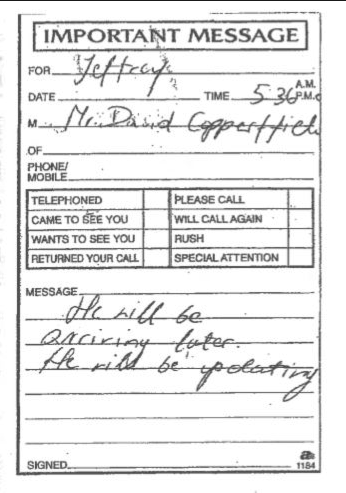 IMPORTANT MESSAGE
FOR Jeffrey
DATE TIME 5:36 A.M. P.M.
M Mr. David Copperffield
OF
PHONE/
MOBILE
TELEPHONED PLEASE CALL
CAME TO SEE YOU WILL CALL AGAIN
WANTS TO SEE YOU RUSH
RETURNED YOUR CALL SPECIAL ATTENTION
MESSAGE
He will be
arriving later.
He will be updating
SIGNED 1184